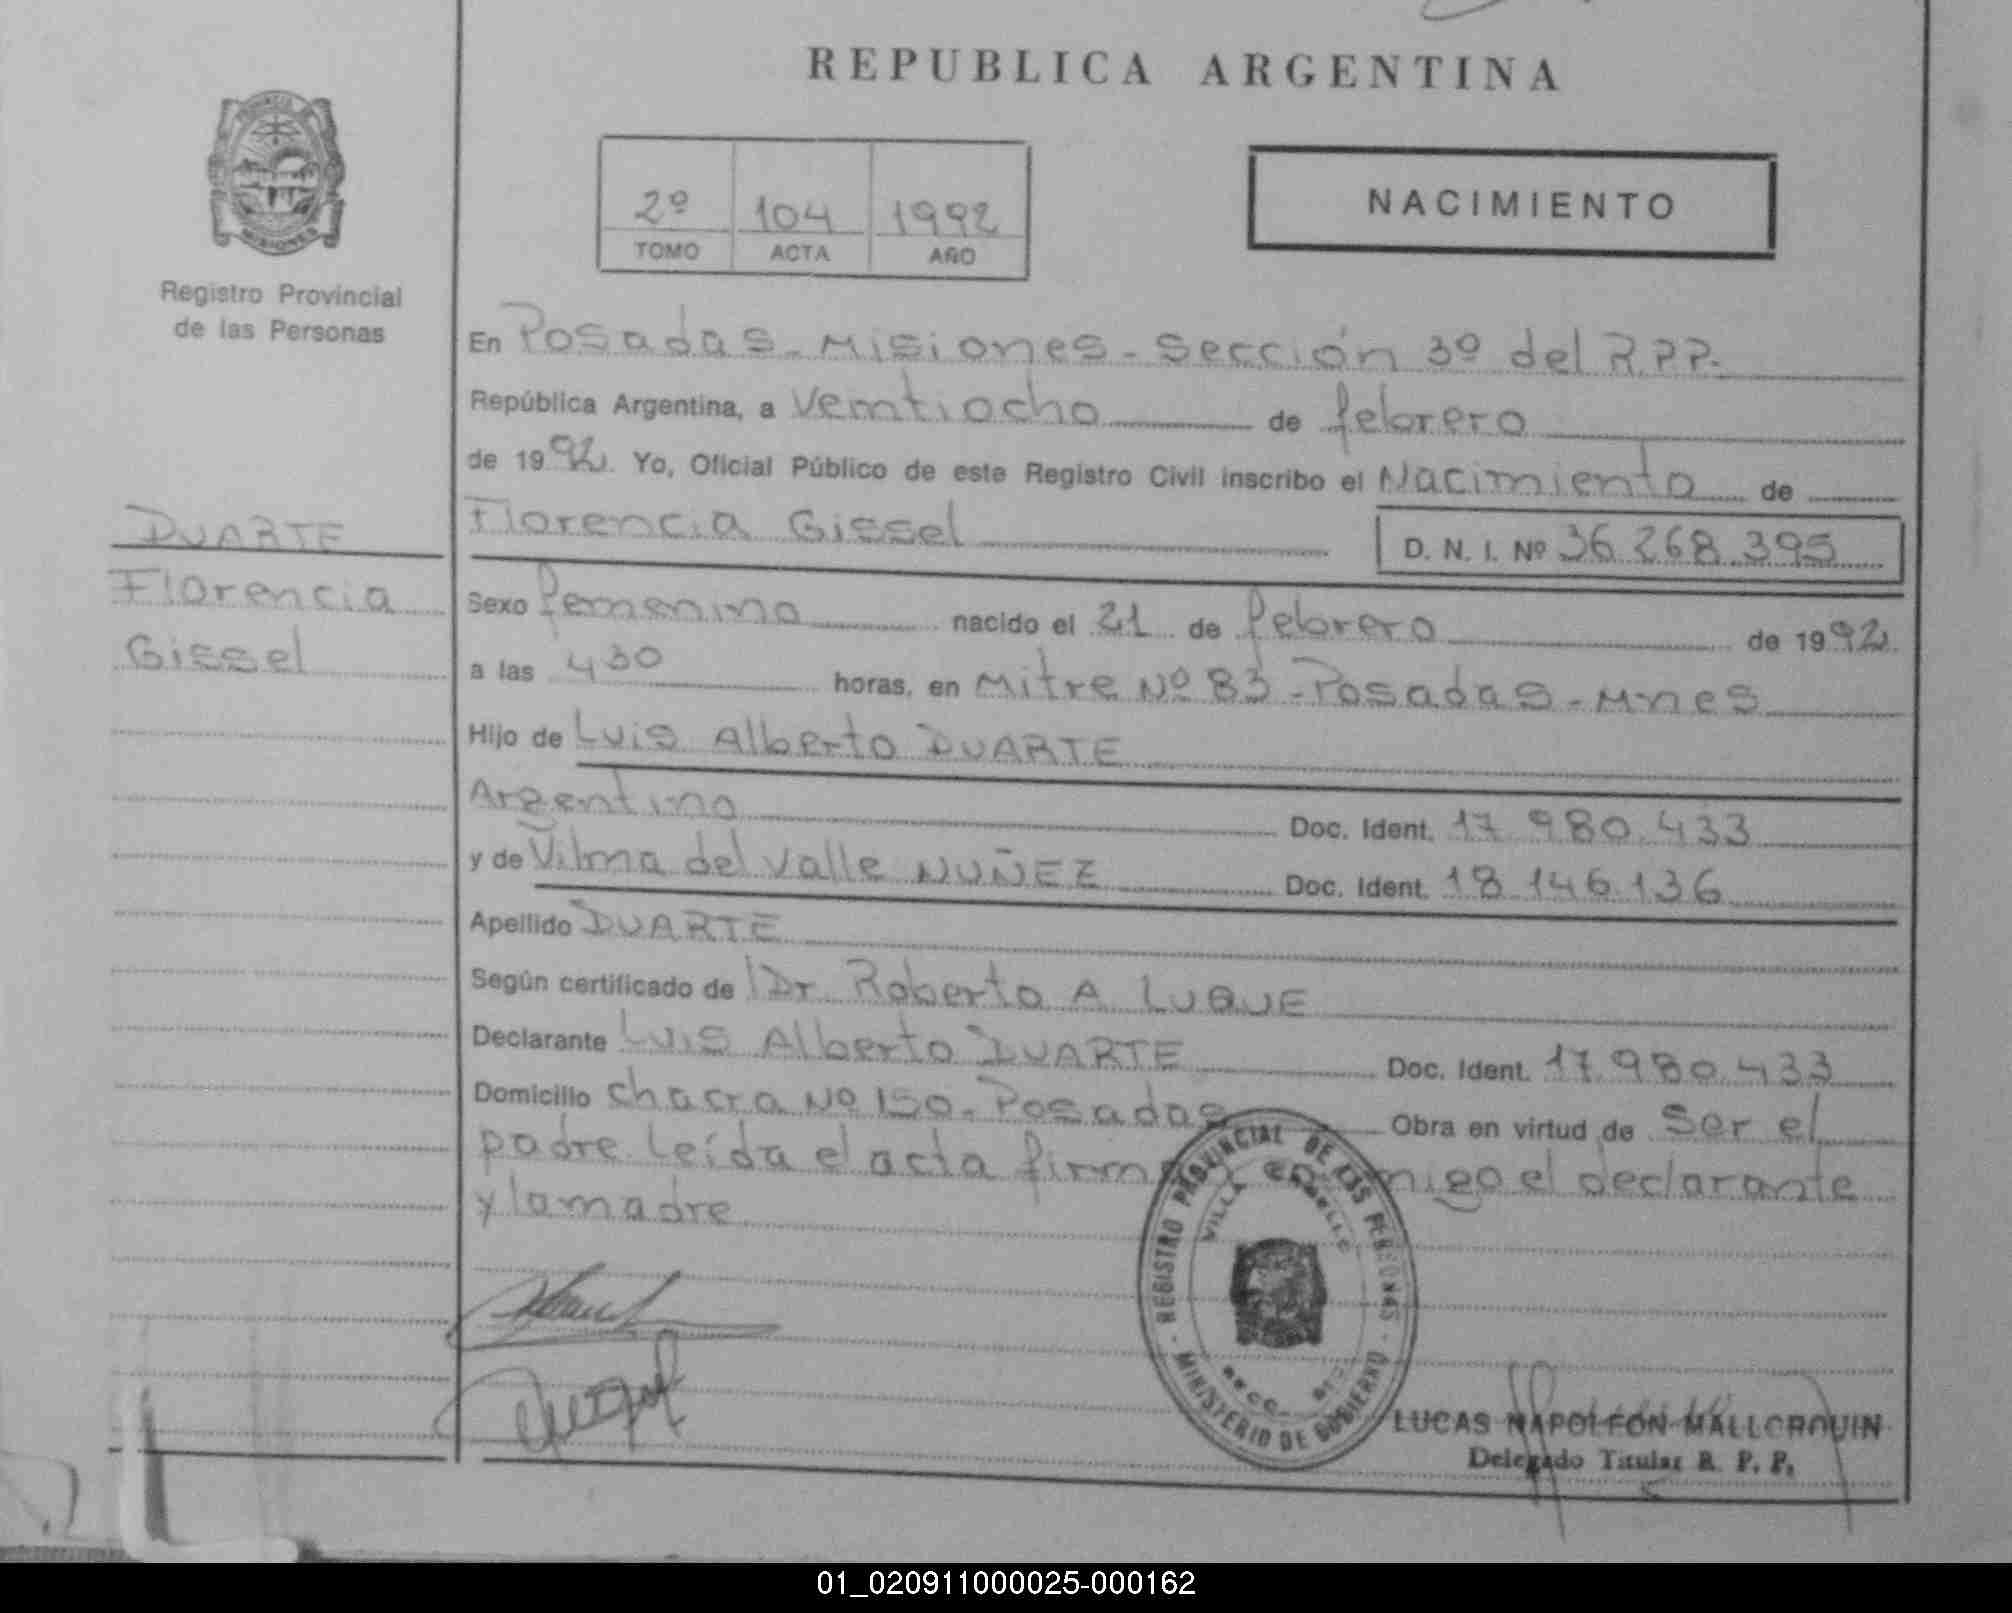 REPUBLICA ARGENTINA
PROVINCIA
MISIONES
Registro Provincial
de las Personas
2º 104 1992
TOMO ACTA AÑO
NACIMIENTO
En Posadas - Misiones - Sección 3º del R.P.P.
República Argentina, a Veintiocho de febrero
de 1992. Yo, Oficial Público de este Registro Civil inscribo el Nacimiento de
Florencia Gissel D. N. I. Nº 36.268.395
DUARTE
Florencia
Gissel
Sexo femenino nacido el 21 de febrero de 1992
a las 4 30 horas, en Mitre Nº 83 - Posadas - Mnes
Hijo de Luis Alberto DUARTE
Argentino Doc. Ident. 17.980.433
y de Vilma del Valle NUÑEZ Doc. Ident. 18.146.136
Apellido DUARTE
Según certificado de Dr. Roberto A LUQUE
Declarante Luis Alberto DUARTE Doc. Ident. 17.980.433
Domicilio Chacra Nº 150. Posadas Obra en virtud de ser el
padre. Leída el acta firma conmigo el declarante
y la madre
REGISTRO PROVINCIAL DE LAS PERSONAS
VILLA
MINISTERIO DE GOBIERNO
LUCAS NAPOLEON MALLORQUIN
Delegado Titular R. P. P.
01_020911000025-000162